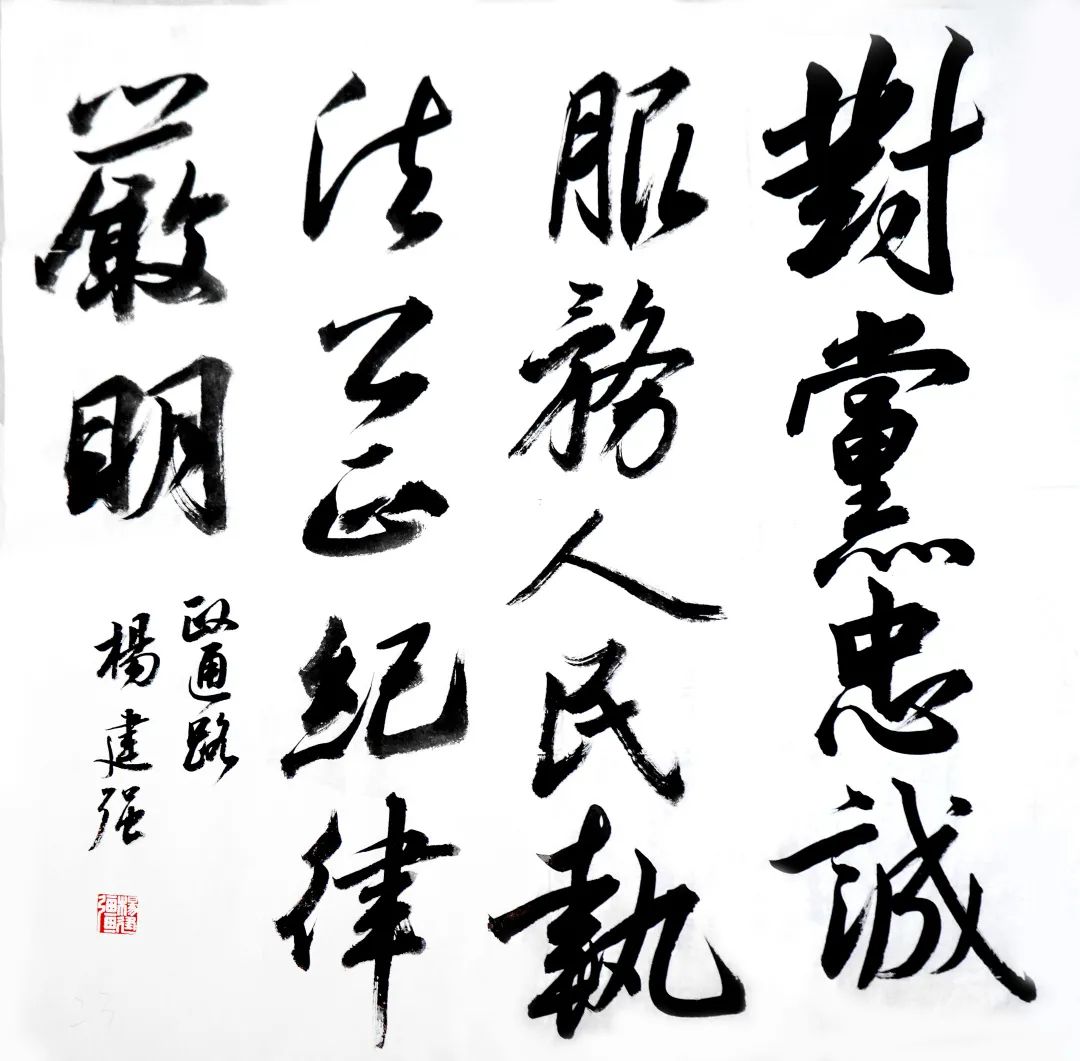 對黨忠誠
服務人民執
法公正紀律
嚴明
政通路
楊建强